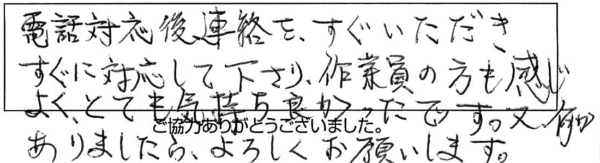 電話対応後連絡を、すぐいただき
すぐに対応して下さり、作業員の方も感じ
よく、とても気持ち良かったです。又何か
ご協力ありがとうございました。
ありましたら、よろしくお願いします。